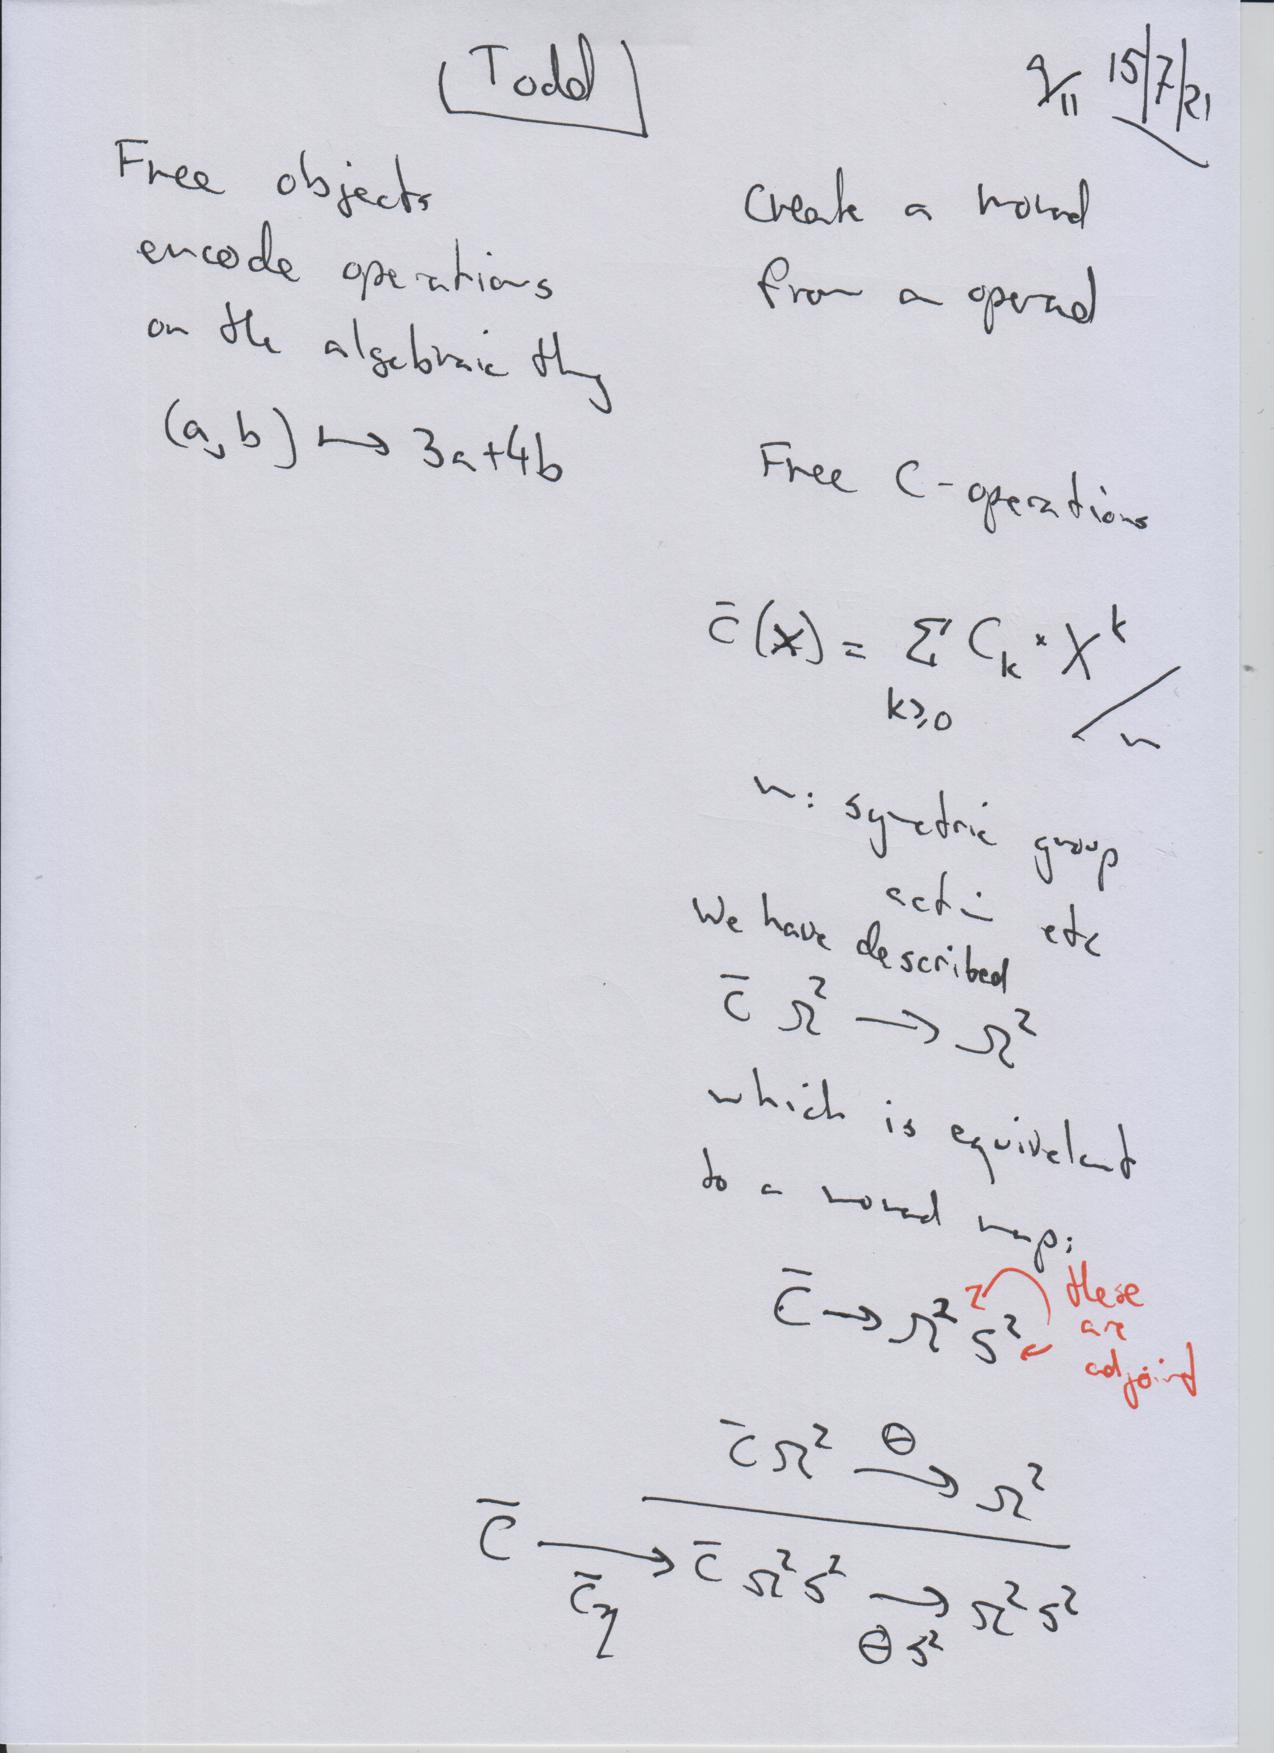 Todd
9/11 15/7/21
Free objects
encode operations
on the algebraic thg
(a, b) ↦ 3a+4b
Create a monad
from a operad
Free C-operations
C̄(X) = Σ C_k × X^k / ~
k⩾0
~: symetric group
action etc
We have described
C̄ Ω² → Ω²
which is equivelant
to a monad map:
C̄ → Ω² S²
these
are
adjoint
C̄ Ω² →^θ Ω²
C̄ → C̄ Ω² S² → Ω² S²
C̄η
θ S²